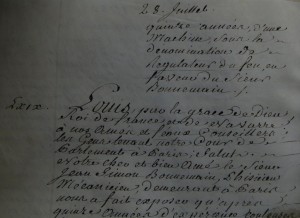 28. Juillet
quinze années d'une
Machine, sous la
dénomination de
Régulateur de feu, en
faveur du Sieur
Bonnemain
Louis, par la grace de Dieu
Roi de france et de Navarre
à nos Amés et feaux Conseillers
les Gens tenant notre Cour de
Parlement à Paris; Salut.
Notre cher et bien Amé le Sieur
Jean Simon Bonnemain, Phisicien
Mécanicien, demeurant à Paris
nous a fait exposer qu'après
quinze Années d'expériences